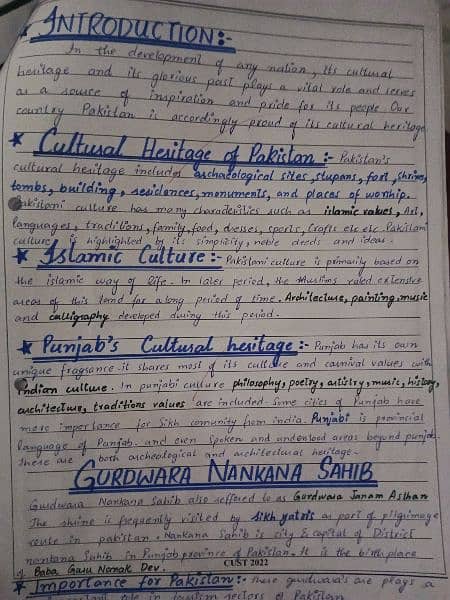 * INTRODUCTION:-
In the development of any nation, its cultural
heritage and its glorious past plays a vital role and serves
as a source of inspiration and pride for its people. Our
country Pakistan is accordingly proud of its cultural heritage
* Cultural Heritage of Pakistan :- Pakistan's
cultural heritage includes archaeological sites, stupans, fort, shrine,
tombs, building, residances, monuments, and places of worship.
Pakistani culture has many characteristics such as islamic values, Art,
languages, traditions, family, food, dresses, sports, Crafts etc etc. Pakistani
culture is highlighted by its simplicity, noble deeds and ideas.
* Islamic Culture :- Pakistani culture is primarily based on
the islamic way of life. In later period, the Muslims ruled extensive
areas of this land for a long period of time. Architecture, painting, music
and calligraphy developed during this period.
* Punjab's Cultural heritage :- Punjab has its own
unique fragrance. it shares most of its culture and carnival values with
Indian culture. In punjabi culture philosophy, poetry, artistry, music, history,
architecture, traditions values are included. Some cities of Punjab have
more importance for Sikh comunity from india. Punjabi is provincial
language of Punjab. and even spoken and understood areas beyound punjab.
These are both archeological and architectural heritage.
GURDWARA NANKANA SAHIB
Gurdwara Nankana Sahib also reffered to as Gurdwara Janam Asthan
The shrine is frequently visited by Sikh yatris as part of pilgrimage
route in pakistan. Nankana Sahib is city & capital of District
nankana Sahib in Punjab province of Pakistan. It is the birth place
of Baba Guru Nanak Dev.
CUST 2022
* Importance for Pakistan :- these gurdwara's are plays a
role in tourism sectors of Pakistan